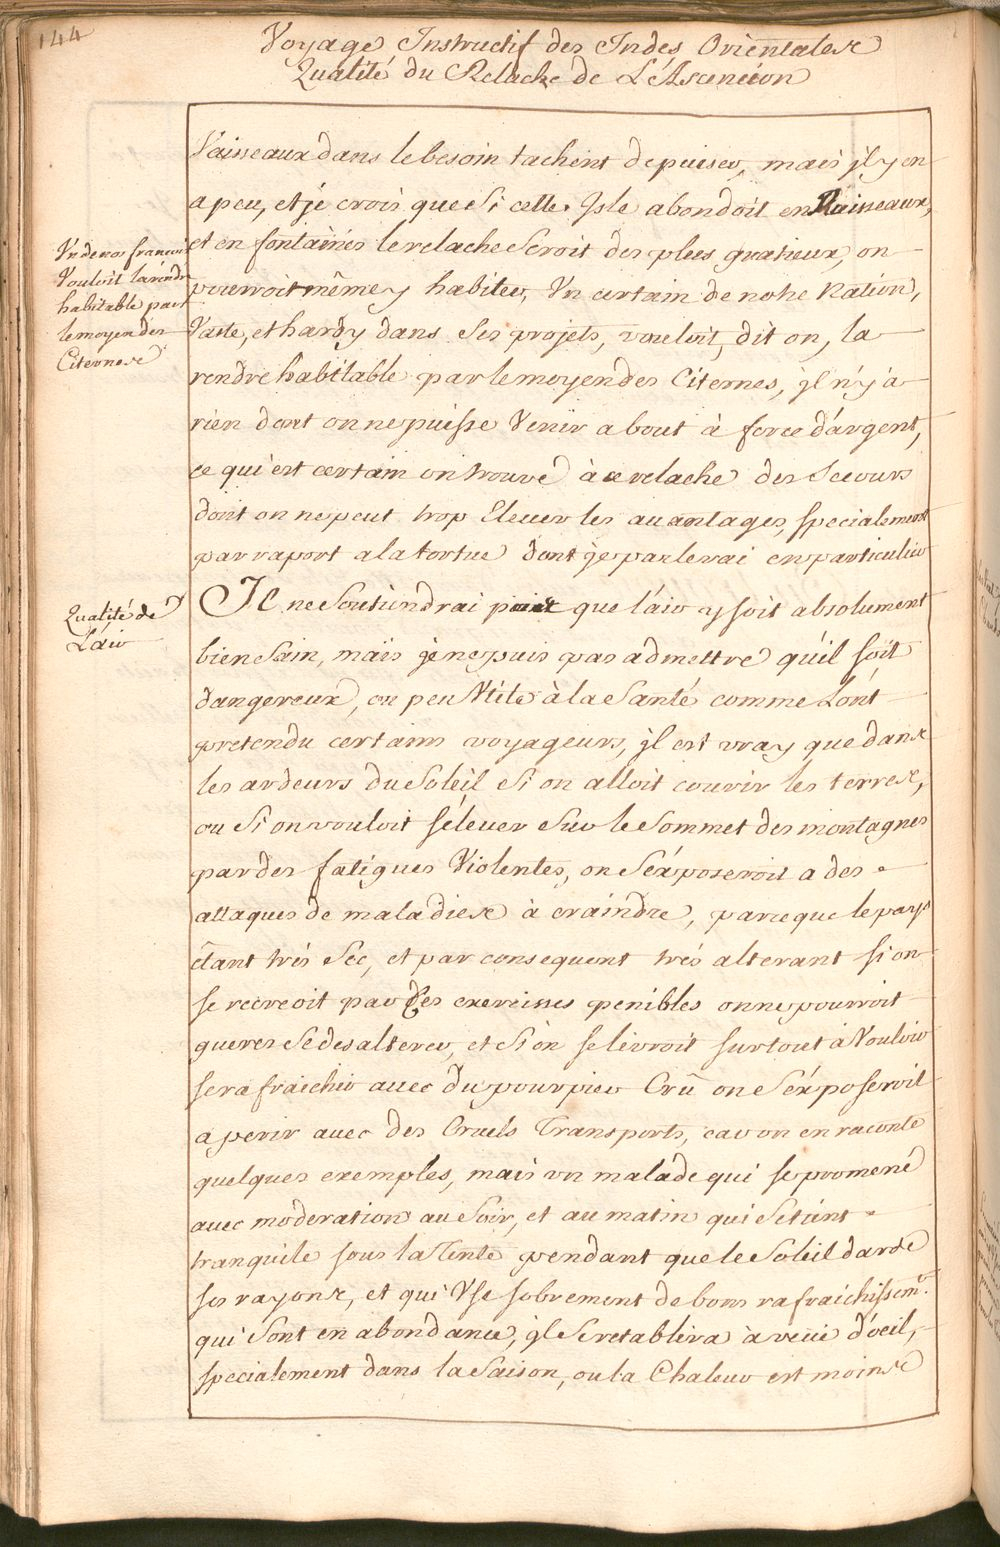 144
Voyage Instructif des Indes Orientales
Qualité du Relache de L'Ascencion
Vaisseaux dans le besoin tachent de puiser, mais jl y en
a peu, et je crois que si cette Isle abondoit en Ruisseaux,
et en fontaines le relache seroit des plus gratieux, on
pourroit même y habiter, Un certain de notre Nation,
Vaste, et hardy dans ses projets, vouloit, dit on, la
rendre habitable par le moyen des Citernes, jl n'y a
rien dont on ne puisse Venir a bout à force d'argent,
ce qui est certain on trouve à ce relache des Secours
dont on ne peut trop Elever les avantages, specialement
par raport a la tortue dont je parlerai en particulier
Un de nos francois
Vouloit la rendre
habitable par
le moyen des
Citernes
Qualité de
L'air
Je ne Soutiendrai point que l'air y soit absolument
bien Sain, mais je ne puis pas admettre qu'il soit
dangereux, ou peu Utile à la Santé comme L'ont
pretendu certains voyageurs, jl est vray que dans
les ardeurs du Soleil Si on alloit courir les terres,
ou Si on vouloit s'élever Sur le Sommet des montagnes
par des fatigues Violentes, on S'éxposeroit a des
attaques de maladies à craindre, parce que le pays
étant trés Sec, et par consequent trés alterant si on
se recreoit par des exercisses penibles on ne pourroit
gueres Se desalterer, et Si on se livroit surtout à Vouloir
se rafraichir avec du pourpier Crû on S'éxposeroit
a perir avec des Cruels Transports, car on en raconte
quelques exemples, mais un malade qui se promene
avec moderation au Soir, et au matin qui Se tient
tranquile sous la Tente pendant que le Soleil darde
ses rayons, et qui Use sobrement de bons rafraichissem.t
qui Sont en abondance, jl Se retablira à veüe d'oeil,
specialement dans la Saison, ou la Chaleur est moins